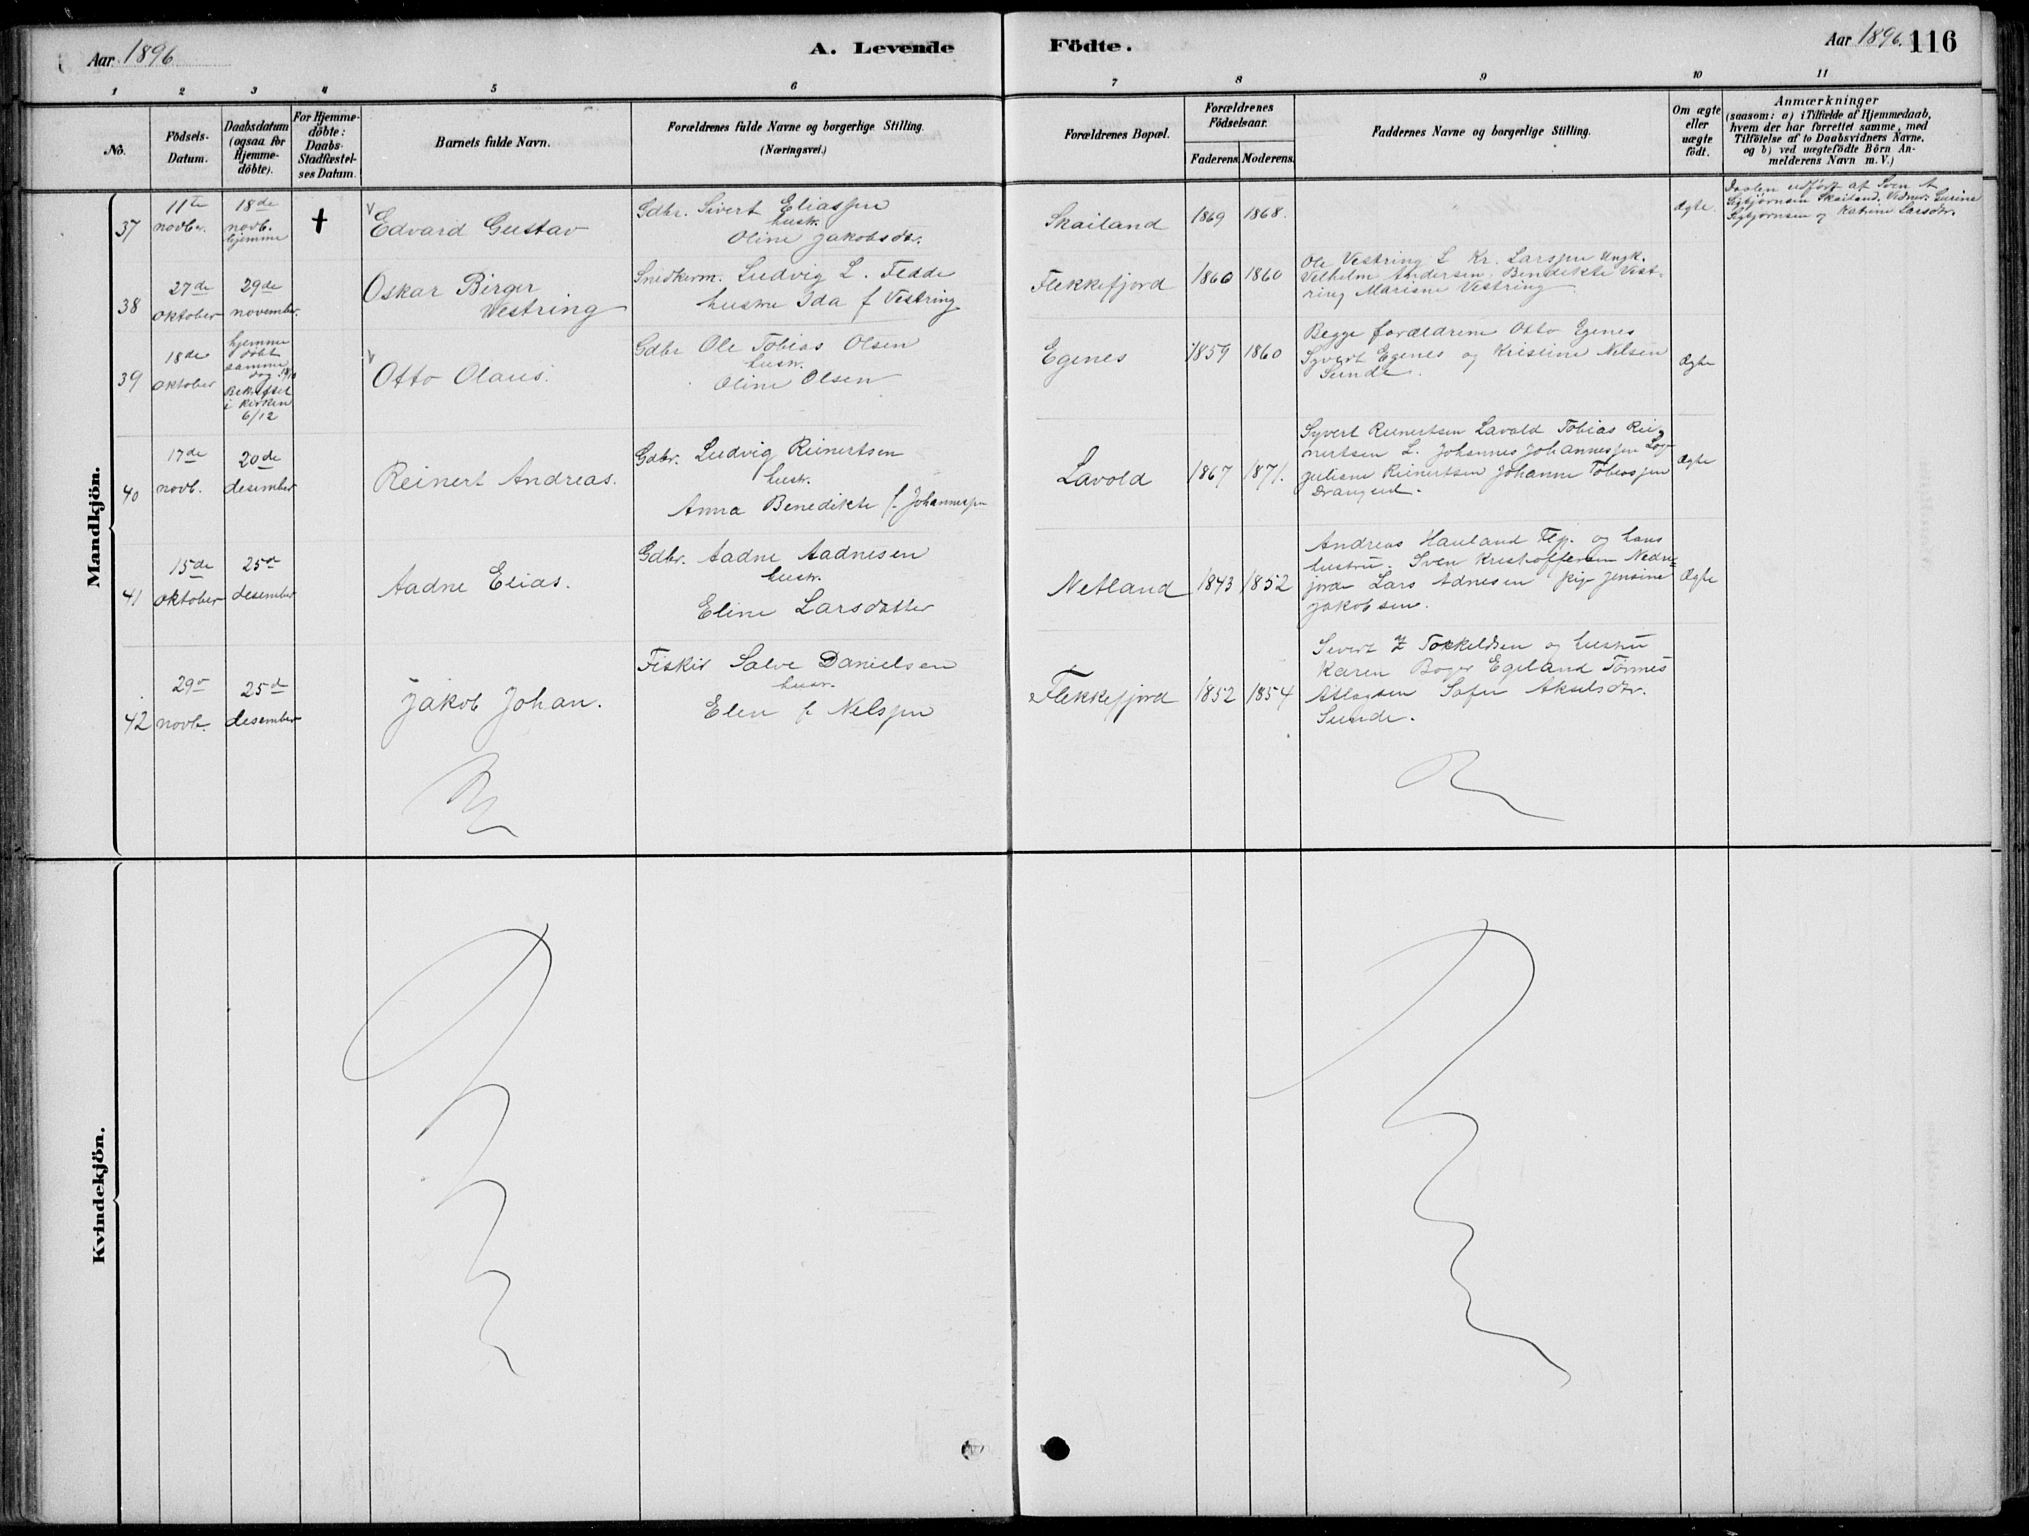 Aar 1896
A. Levende
Födte.
Aar 1896. 116
1 2 3 4 5 6 7 8 9 10 11
No.
Födsels-
Datum.
Daabsdatum
(ogsaa for
Hjemme-
döbte).
For Hjemme-
döbte:
Daabs-
Stadfæstel-
ses Datum.
Barnets fulde Navn.
Forældrenes fulde Navne og borgerlige Stilling.
(Næringsvei.)
Forældrenes Bopæl.
Forældrenes
Födselsaar.
Faderens. Moderens.
Faddernes Navne og borgerlige Stilling.
Om ægte
eller
uægte
født.
Anmærkninger
(saasom: a) i Tilfælde af Hjemmedaab,
hvem der har forrettet samme, med
Tilföielse af to Daabsvidners Navne,
og b) ved uægtefödte Börn An-
melderens Navn m. V.)
Mandkjön.
37
11te
novbr.
18de
novb.
hjemme
✝
Edvard Gustav
Gdbr. Sivert Eliassen
hustr.
Oline Jakobsdtr.
Skailand
1869 1868.
Ægte.
Daaben udført af Sven A
Sigbjørnsen Skailand. Vidner: Serine
Sigbjørnsen og Katrine Larsdtr.
38
27de
oktober
29de
november.
Oskar Birger
Vestring
Snedkerm. Ludvig L. Fedde
hustru Ida f Vestring
Flekkefjord
1860 1860
Ole Vestring L Kr. Larssen Ungk.
Vilhelm Andersen. Bendikte Vest-
ring Marisne Vestring
39
18de
oktober
hjemme
døbt
samme
dag
Bekræftet
i kirken
6/12
Otto Olaus.
Gdbr Ole Tobias Olsen
hustr.
Oline Olsen
Egenes
1859 1860
Begge forældrene Otto Egenes
Syvert Egenes og Kristine Nelsen
Sunde.
Ægte
40
17de
novb.
20de
desember
Reinert Andreas.
Gdbr. Ludvig Reinertsen
hustr.
Anna Benedikte f. Johannessen
Lavold
1867 1871.
Syvert Reinertsen Lavold Tobias Rei-
nertsen L. Johannes Johannessen Log
Juliane Reinertsen Johanne Tobiassen
Drangeid.
Ægte
41
15de
oktober
25de
desember
Aadne Elias.
Gdbr. Aadne Aadnesen
hustr.
Eline Larsdatter
Netland
1843 1852
Andreas Hauland Flfj. og hans
hustru. Sven Kristoffersen Nedre-
jorde Lars Adnesen pige Jensine
Jakobsen.
Ægte
42
29de
novb.
25de
desember
Jakob Johan.
Fisker Salve Danielsen
hustr.
Elen f Nelssen
Flekkefjord
1852 1854
Severt Z Torkeldsen og hustru
Karen Boger Egeland Tønnes
Atlagsen Sofie Akselsdtr.
Sunde.
Kvindekjön.